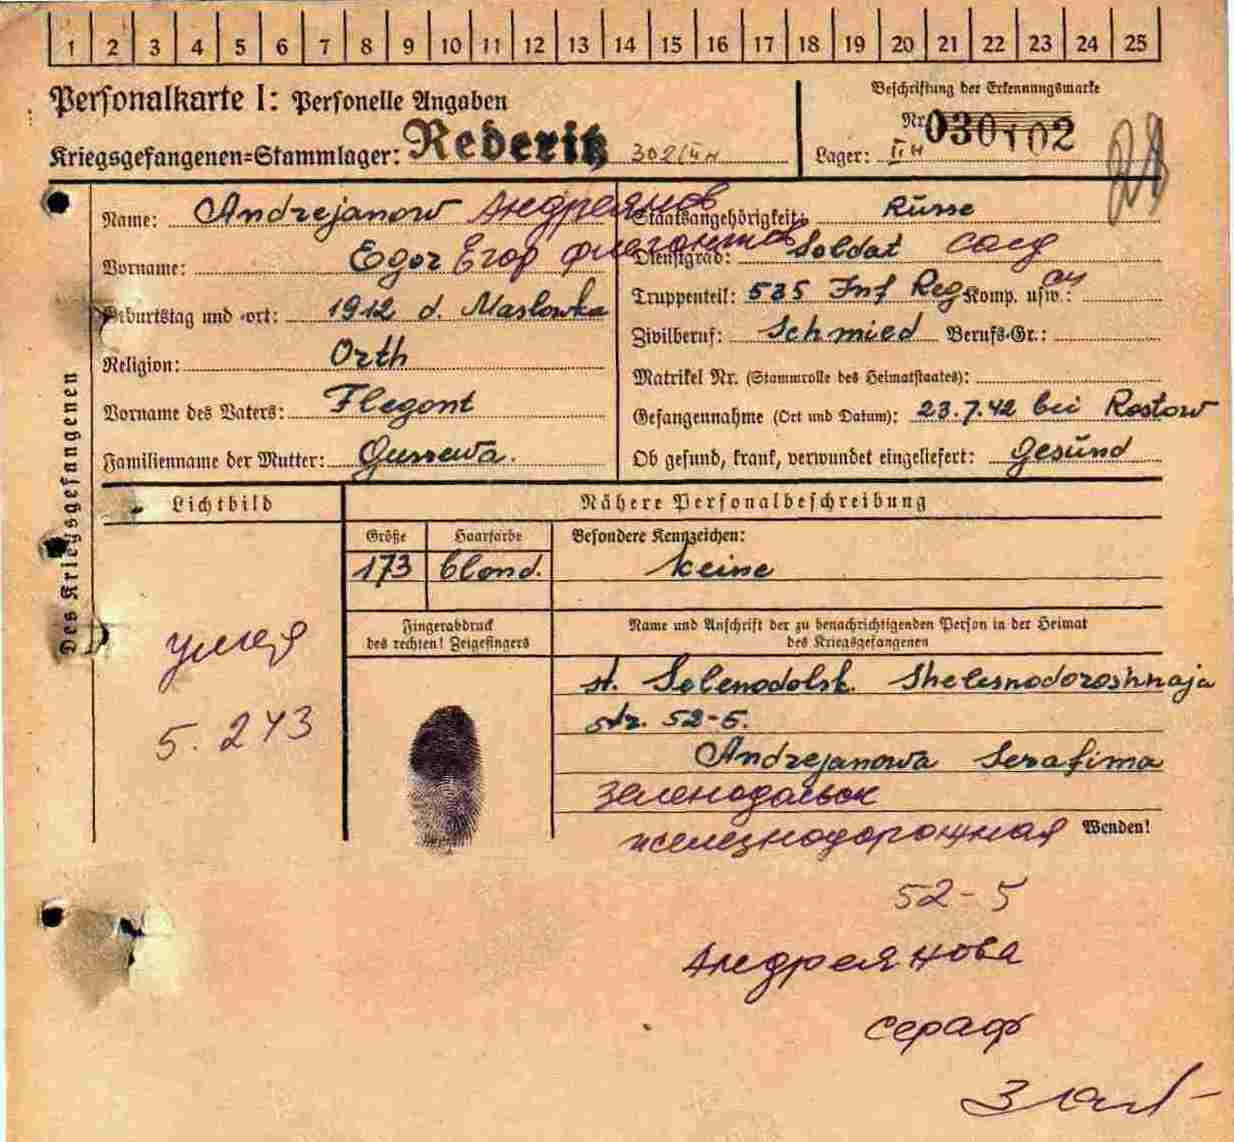 1 2 3 4 5 6 7 8 9 10 11 12 13 14 15 16 17 18 19 20 21 22 23 24 25
Personalkarte I: Personelle Angaben
Beschriftung der Erkennungsmarke
Kriegsgefangenen=Stammlager: Rederitz 302/II H
Nr. 030102
Lager: II H
Des Kriegsgefangenen
Name: Andrejanow Андреянов
Staatsangehörigkeit: Russe
Vorname: Egor Егор
Dienstgrad: Soldat солд
Geburtstag und -ort: 1912 d. Maslowka
Truppenteil: 535 Inf Reg Komp. usw.:
Religion: Orth
Zivilberuf: Schmied Berufs-Gr.:
Matrikel Nr. (Stammrolle des Heimatstaates):
Vorname des Vaters: Flegont
Gefangennahme (Ort und Datum): 23.7.42 bei Rostow
Familienname der Mutter: Gussewa.
Ob gesund, krank, verwundet eingeliefert: Gesund
Lichtbild
Nähere Personalbeschreibung
Größe
Haarfarbe
Besondere Kennzeichen:
173
blond.
keine
Fingerabdruck
des rechten! Zeigefingers
Name und Anschrift der zu benachrichtigenden Person in der Heimat
des Kriegsgefangenen
умер
5.243
st. Selenodolsk. Shelesnodoroshnaja
str. 52-5.
Andrejanowa Serafima
Зеленодольск
железнодорожная
Wenden!
52-5
Андреянова
сераф